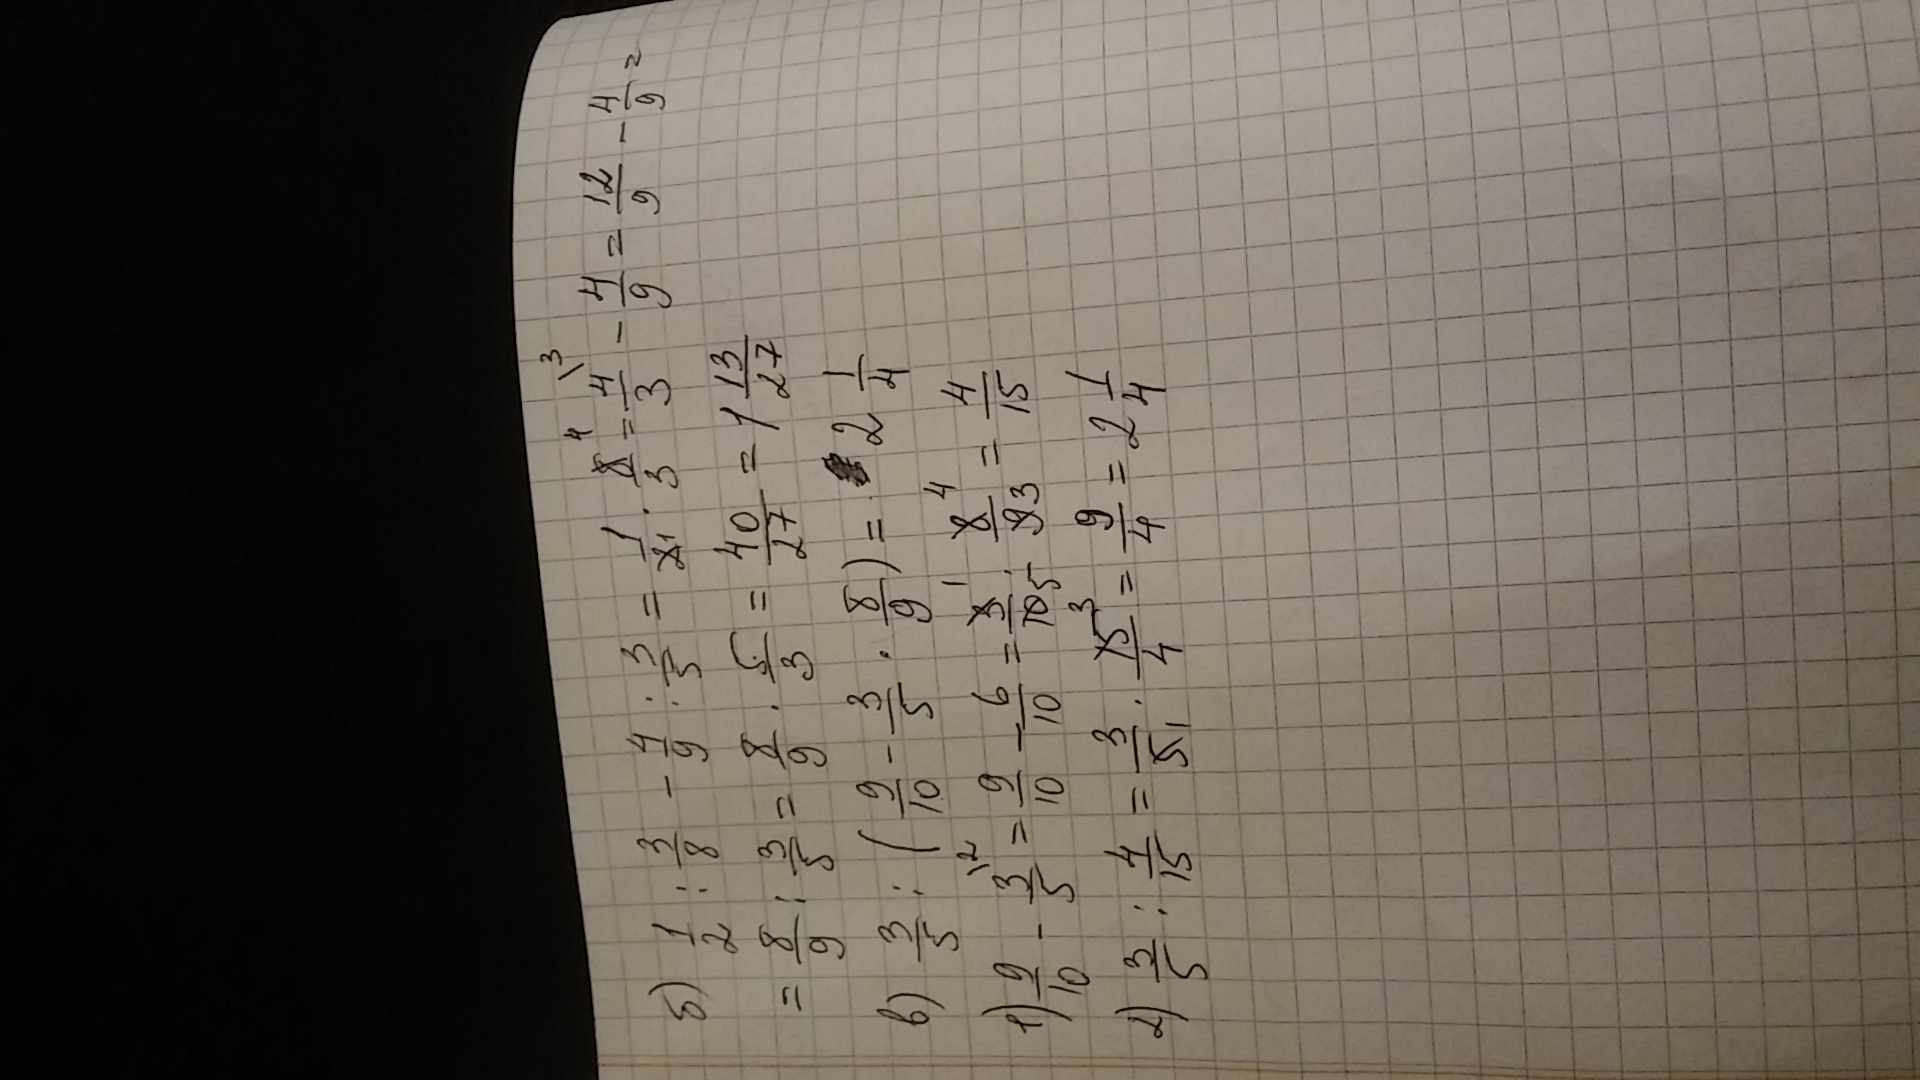 б) 1/2 : 3/8 - 4/9 : 3/5 = 1/2 1 · 8 4/3 = 4\3/3 - 4/9 = 12/9 - 4/9 =
= 8/9 : 3/5 = 8/9 · 5/3 = 40/27 = 1 13/27
в) 3/5 : (9/10 - 3/5 · 8/9) = 2 1/4
1) 9/10 - 3\2/5 = 9/10 - 6/10 = 3 1/10 5 · 8 4/9 3 = 4/15
2) 3/5 : 4/15 = 3/5 1 · 15 3/4 = 9/4 = 2 1/4